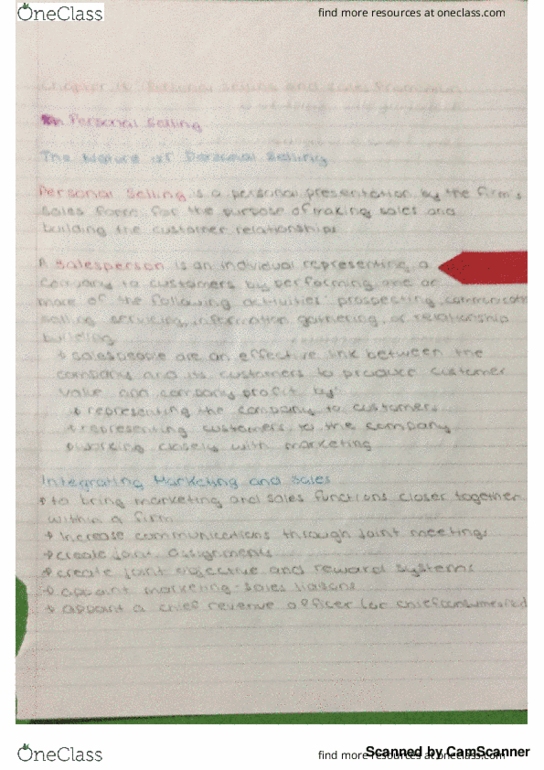 OneClass
find more resources at oneclass.com
Personal Selling and Sales
Personal selling
The Nature of Personal Selling
Personal Selling is a personal presentation by the firm's
sales force for the purpose of making sales and
building the customer relationships
A salesperson is an individual representing a
company to customers by performing one or
more of the following activities: prospecting, communicati
selling, servicing, information gathering, or relationship
building
salespeople are an effective link between the
company and its customers to produce customer
value and company profit by:
representing the company to customers
representing customers to the company
working closely with marketing
Integrating Marketing and sales
to bring marketing and sales functions closer together
within a firm
increase communications through joint meetings
create joint assignments
create joint objective and reward systems
appoint marketing-sales liasons
appoint a chief revenue officer (or chief
OneClass
find more resources at oneclass.com
Scanned by CamScanner